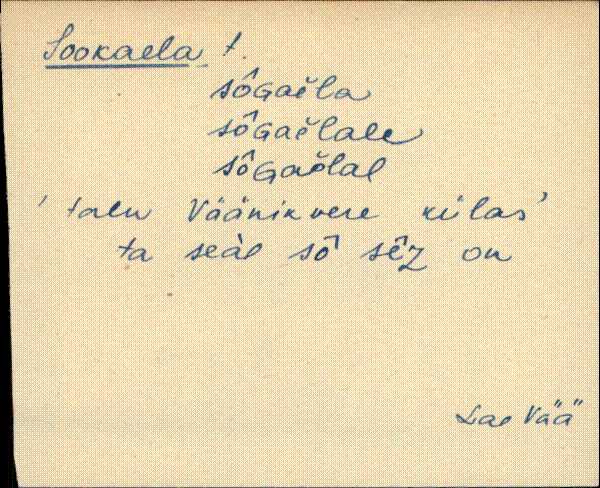 Sookaela t.
sôGaĕla
sôGaĕlale
sôGaĕlal
'talu Väänikvere külas'
ta seàl sô sêz on
Lae Vää